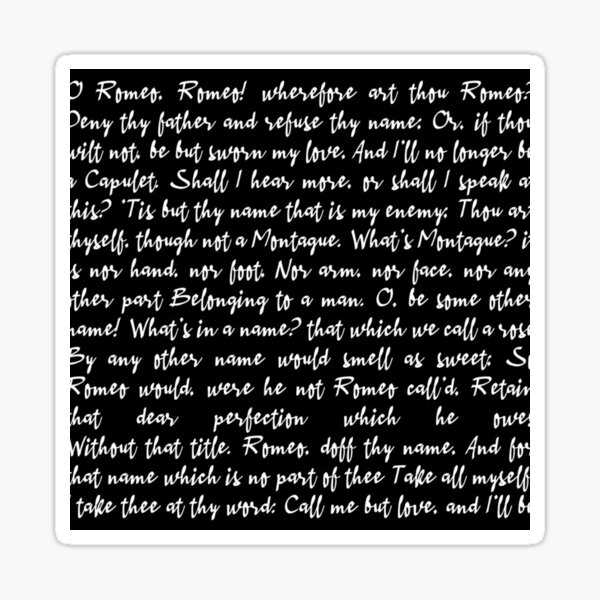 O Romeo, Romeo! wherefore art thou Romeo?
Deny thy father and refuse thy name; Or, if thou
wilt not, be but sworn my love, And I'll no longer be
a Capulet. Shall I hear more, or shall I speak at
this? 'Tis but thy name that is my enemy; Thou art
thyself, though not a Montague. What's Montague? it
is nor hand, nor foot, Nor arm, nor face, nor any
other part Belonging to a man. O, be some other
name! What's in a name? that which we call a rose
By any other name would smell as sweet; So
Romeo would, were he not Romeo call'd, Retain
that dear perfection which he owes
Without that title. Romeo, doff thy name, And for
that name which is no part of thee Take all myself.
I take thee at thy word: Call me but love, and I'll be